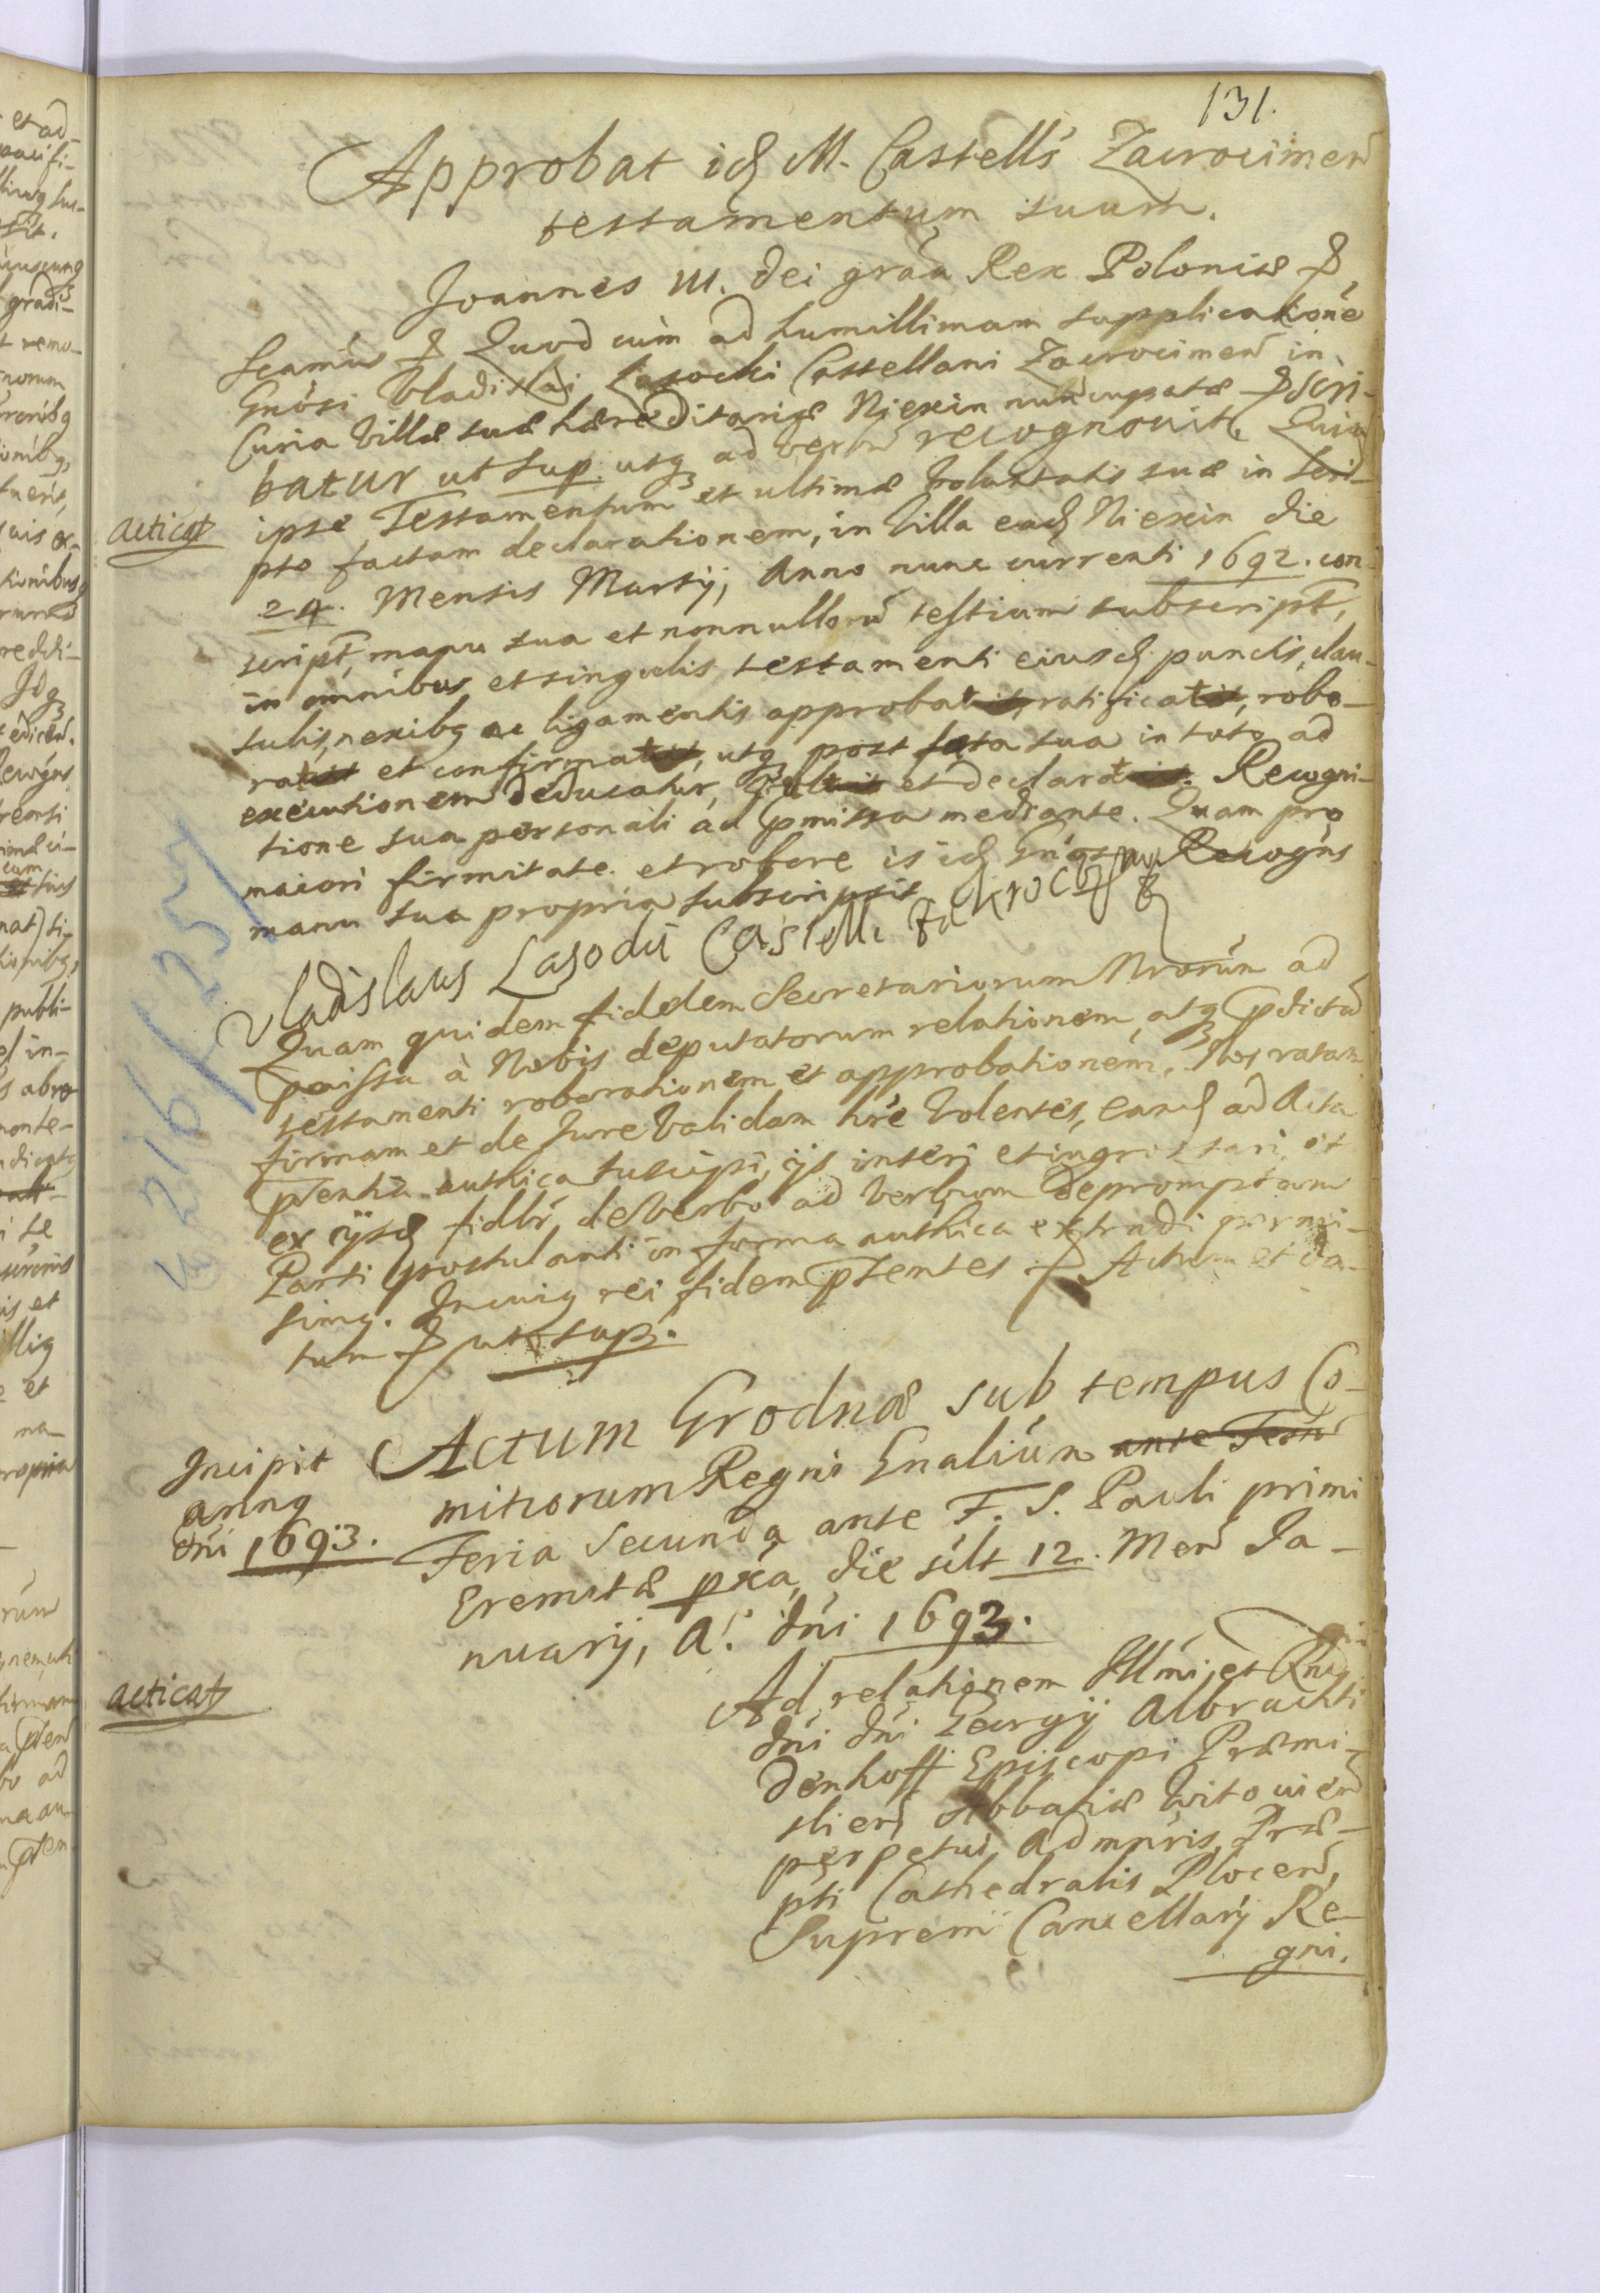 131.
Approbat idq M. Castells Zacrocimen
testamentum suum.
Joannes III. Dei graa Rex Poloniæ
Quod cum ad humillimam supplicatione
Gnosi Vladislai Lasocki Castellani Zacrocimen in
Curia Villæ suæ hæreditariæ Niexin nuncupatæ scri-
batur ut sup. usq ad verba recognouit. Quia
acticat
ipse Testamentum et ultimæ Voluntatis suæ in scri-
pto factam declarationem, in Villa eadq Niexin die
24. Mensis Martij, Anno nunc currenti 1692. con-
script, manu sua et nonnulloru testium subscript,
in omnibus et singulis testamenti eiusdq punctis, clau-
sulis, nexibq ac ligamentis approbat, ratificat, robo-
rat et confirmat, utq post fata sua in toto ad
executionem deducatur, et declarat. Recogni-
tione sua personali ad pmissa mediante. Quam pro
maiori firmitate et robore is idq Recogns
manu sua propria subscripsit
Vladislaus Lasocki Castell
Quam quidem fidelem Secretariorum Nrorum ad
pmissa à Nobis deputatorum relationem, atq pdicta
testamenti roborationem et approbationem, Nos ratam
firmam et de Jure Validam hre Volentes, eandq ad Acta
pentia authica suscipi, ijs inseri et ingrossari, et
ex ijsdq fidlr, de Verbo ad Verbum depromptam
Parti postulanti in forma authica extradi permi-
simq. In cuiq rei fidem pntentes Actum et da-
tum ut sup.
Incipit
annq
dni 1693.
Actum Grodnæ sub tempus Co-
mitiorum Regni Gnalium ante Festu
Feria Secunda ante F. S. Pauli primi
Eremitæ pxa, die silt 12. Men Ja-
nuarij, A. dni 1693.
acticat
Ad relationem Illmi et Rndi
dni dni Georgij Albrachti
Denhoff Episcopi Præmi-
slien, Abbatiæ Witouien
perpetui Admnris, Præ-
pti Cathedralis Plocen,
Supremi Cancellarij Re-
gni.